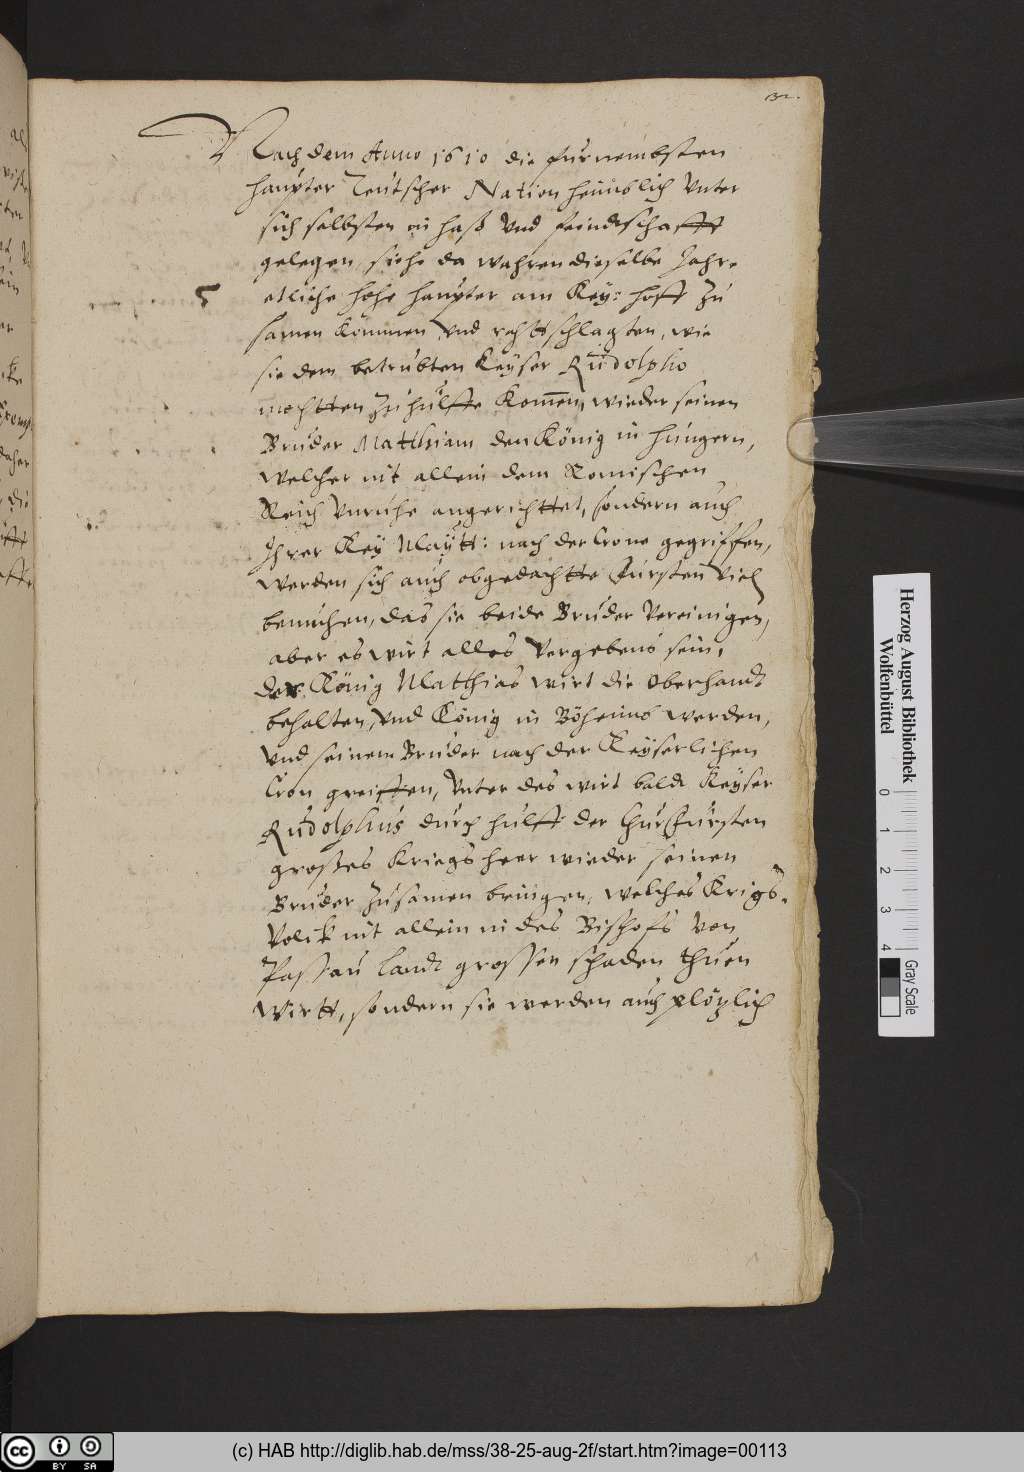 32.
Nach dem Anno 1610 die furnembsten
haupter Teutscher Nation heimblich vnter
sich selbsten in haß vnd feindtschafft
gelegen, siehe da wahren dieselbe Jahr
5 etliche hohe haupter am Key: hoff zu
samen kommen vnd rahttschlagten, wie
sie dem betrubten Keyser Rudolpho
mochtten zu hulffe komen, wieder seinen
Bruder Matthiam den König in hungern,
welcher nit allein dem Romischen
Reich vnruhe angerichttet, sondern auch
Ihrer Key Maytt: nach der Crone gegriffen,
werden sich auch obgedachtte Fursten viel
bemuhen, das sie beide Bruder vereinigen,
aber es wirt alles vergebens sein,
der König Matthias wirt die oberhandt
behalten, vnd König in Böheimb werden,
vnd seinem Bruder nach der Keyserlichen
Cron greiffen, vnter des wirt baldt Keyser
Rudolphus durch hulff der Churfursten
großes Kriegs heer wieder seinen
Bruder zusamen bringen, welches Krigs
volck nit allein in des Bischofs von
Passau landt grossen schaden thuen
wirtt, sondern sie werden auch plötzlich
Herzog August Bibliothek
Wolfenbüttel
0 1 2 3 4
Gray Scale
cc BY SA
(c) HAB http://diglib.hab.de/mss/38-25-aug-2f/start.htm?image=00113